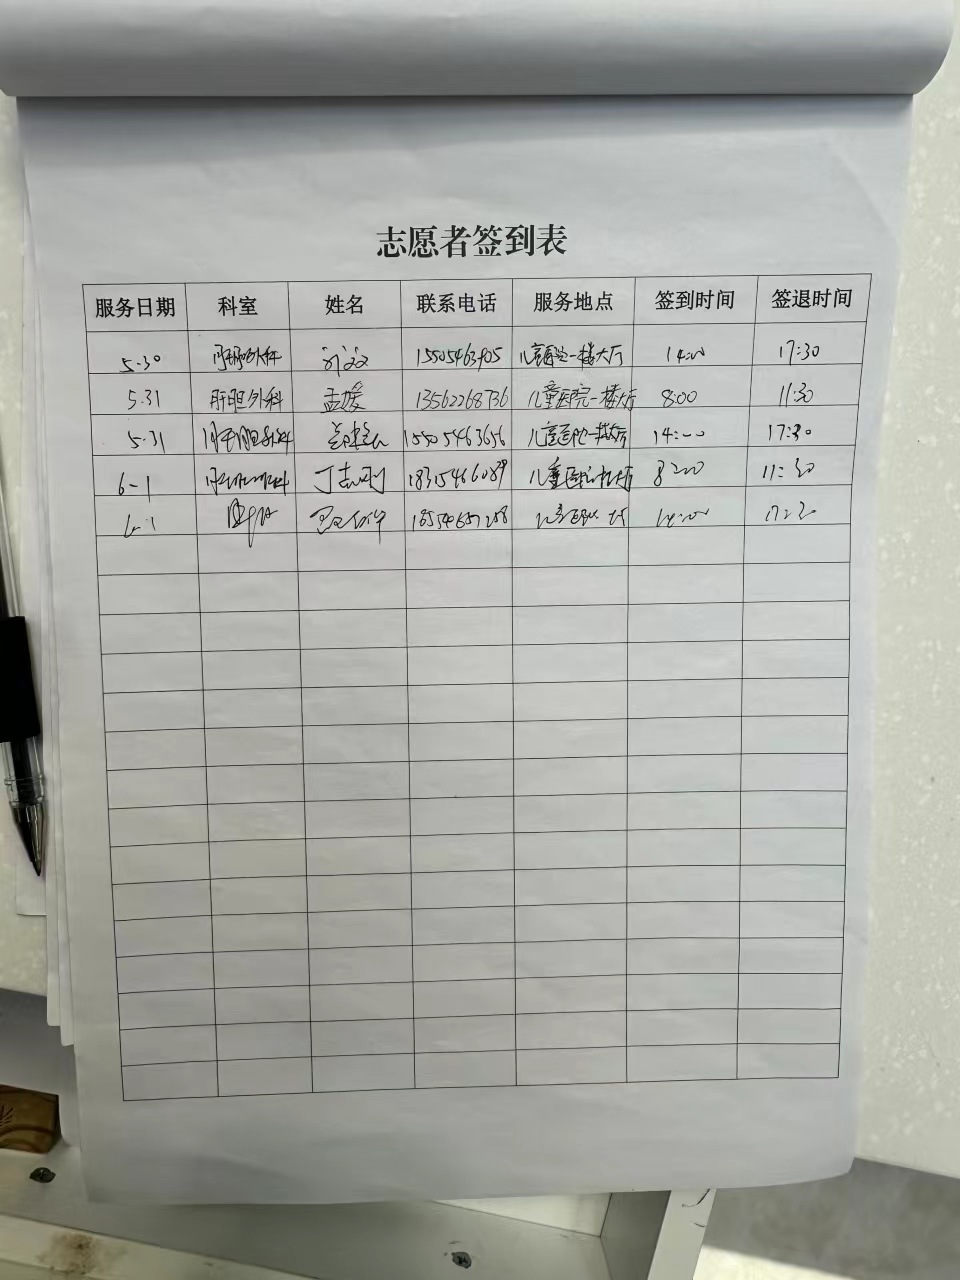 志愿者签到表
服务日期 科室 姓名 联系电话 服务地点 签到时间 签退时间
5.30 肝胆外科 15505463905 儿童医院一楼大厅 14:00 17:30
5.31 肝胆外科 孟媛 13562268736 儿童医院一楼大厅 8:00 11:30
5.31 肝胆外科 15505463656 儿童医院一楼大厅 14:00 17:30
6-1 丁志刚 18315466089 儿童医院 大厅 8:00 11:30
6.1 14:00 17:30